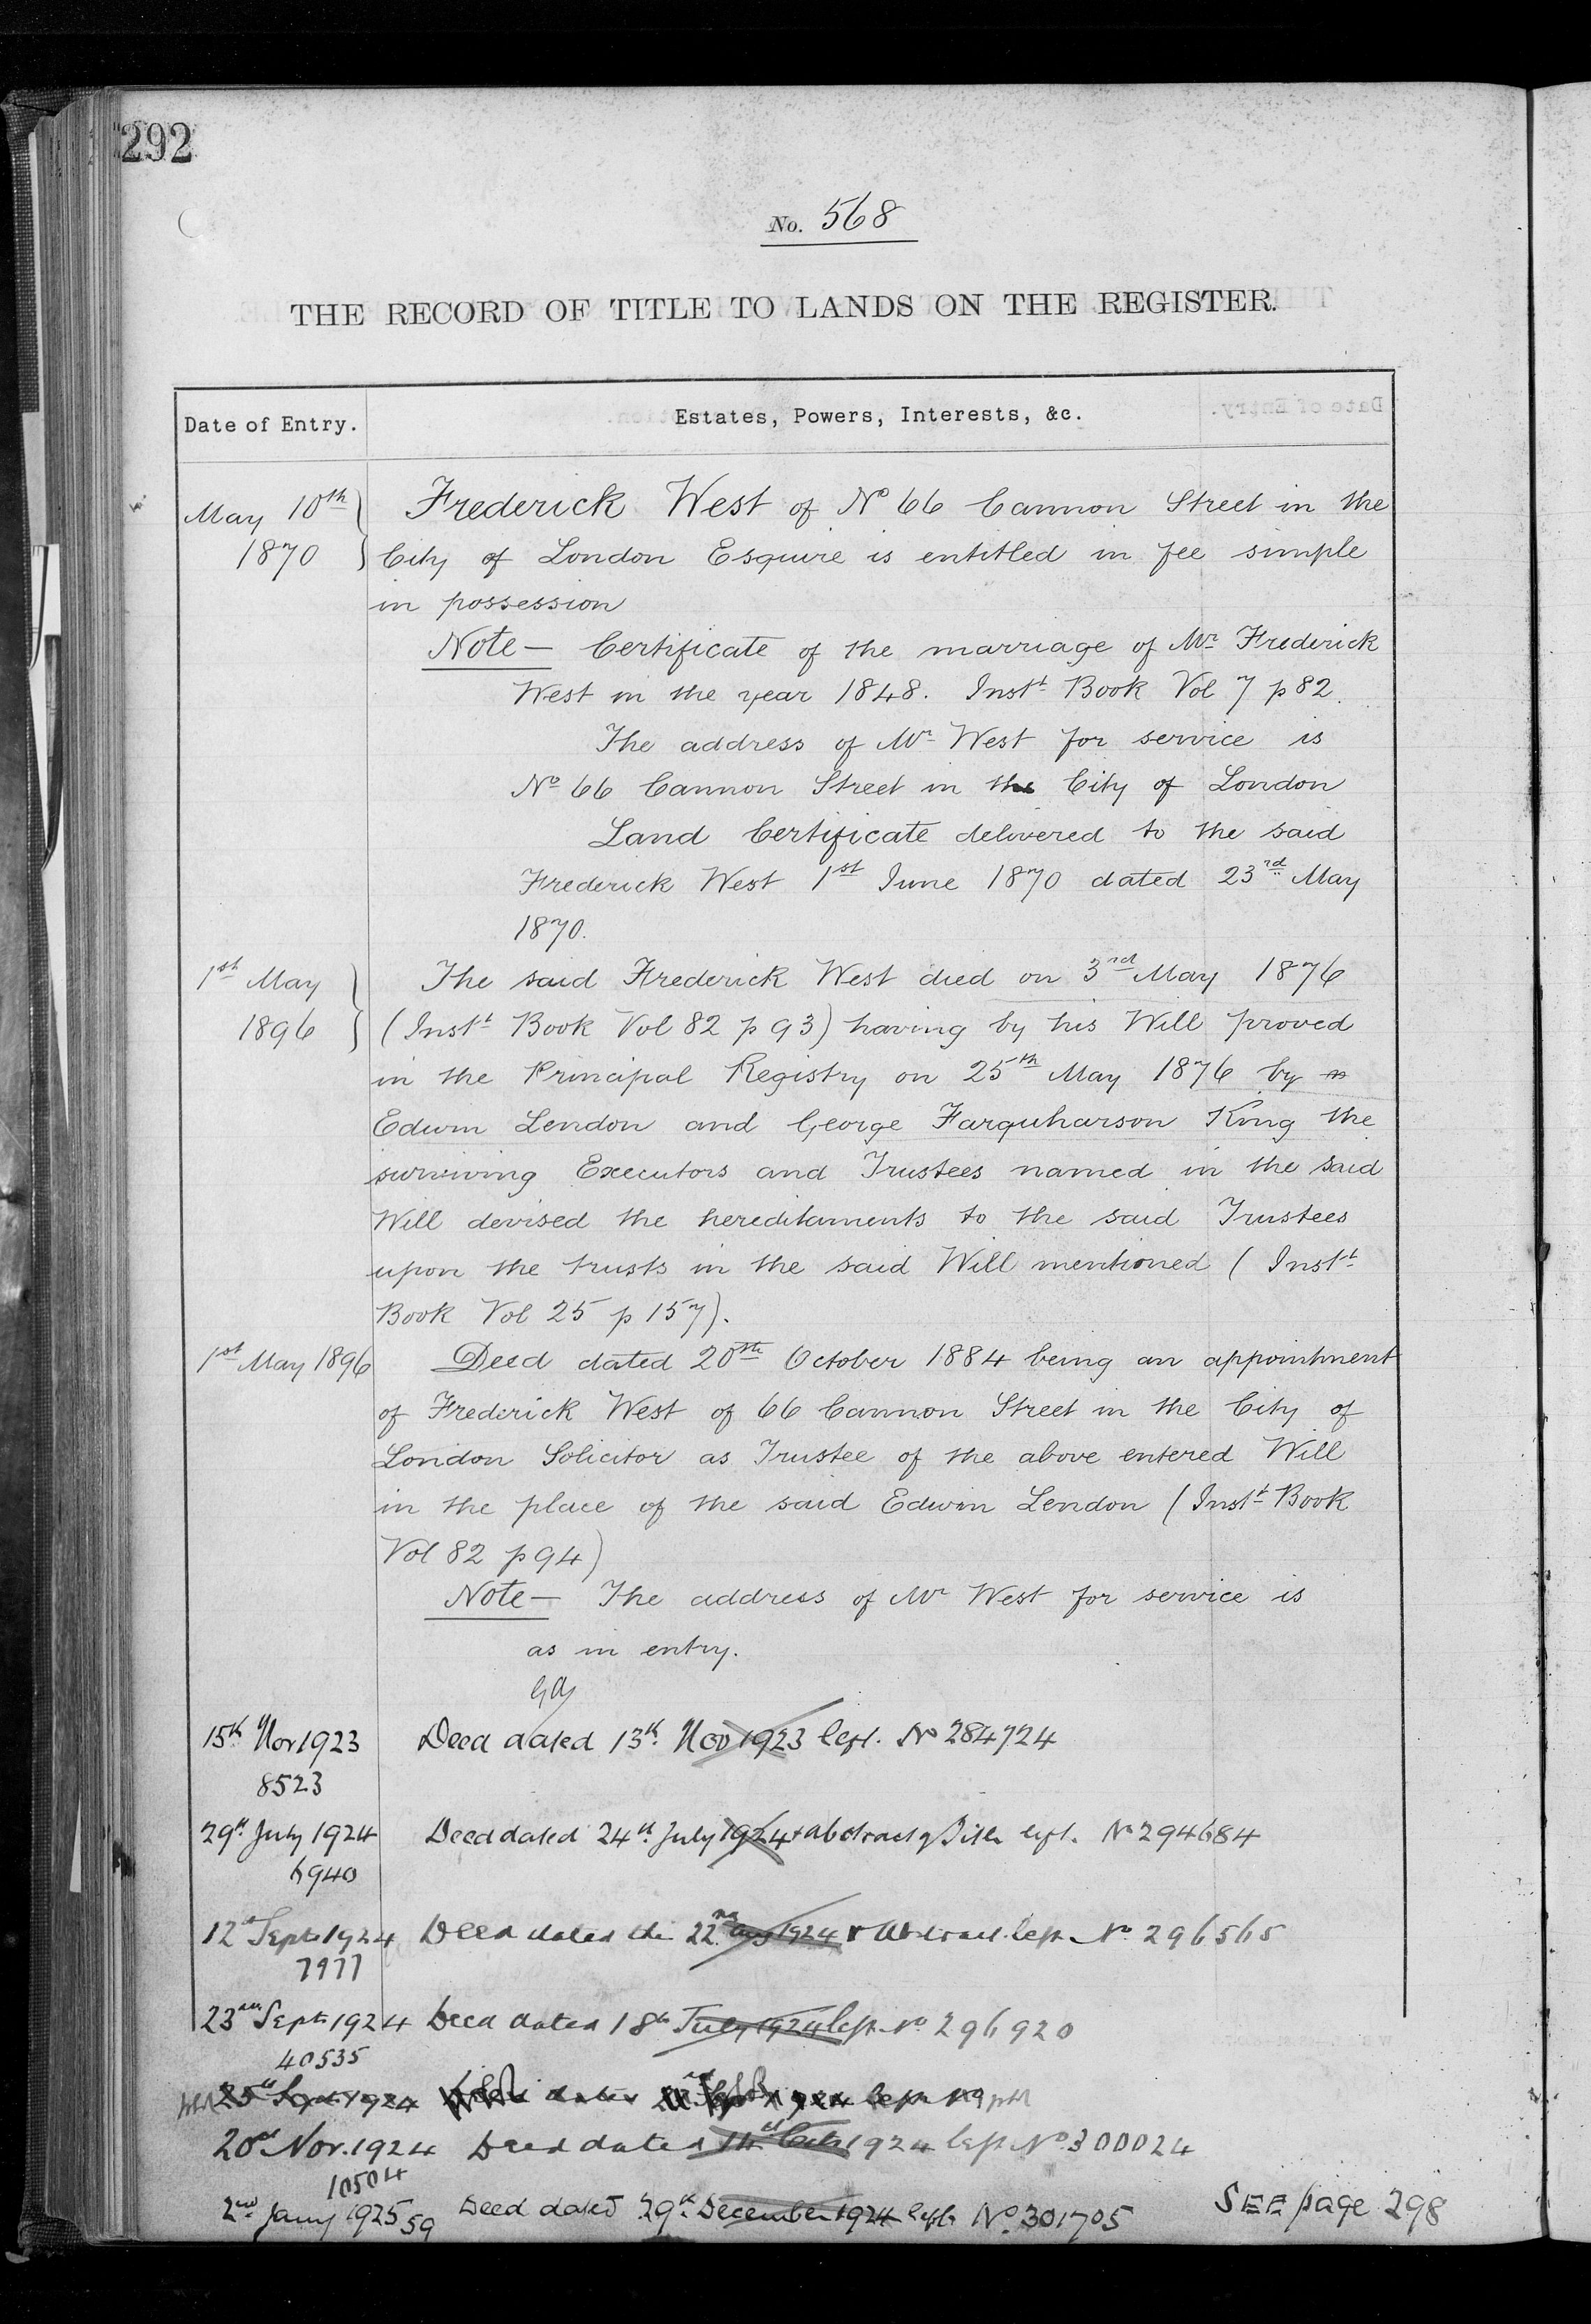 292
No. 568
THE RECORD OF TITLE TO LANDS ON THE REGISTER.
Date of Entry.
Estates, Powers, Interests, &c.
May 10th 1870
Frederick West of No 66 Cannon Street in the
City of London Esquire is entitled in fee simple
in possession
Note — Certificate of the marriage of Mr Frederick
West in the year 1848. Instt Book Vol 7 p 82.
The address of Mr West for service is
No 66 Cannon Street in the City of London
Land Certificate delivered to the said
Frederick West 1st June 1870 dated 23rd May
1870.
1st May 1896
The said Frederick West died on 3rd May 1876
(Instt Book Vol 82 p 93) having by his Will proved
in the Principal Registry on 25th May 1876 by
Edwin Lendon and George Farquharson King the
surviving Executors and Trustees named in the said
Will devised the hereditaments to the said Trustees
upon the trusts in the said Will mentioned (Instt
Book Vol 25 p 157).
1st May 1896
Deed dated 20th October 1884 being an appointment
of Frederick West of 66 Cannon Street in the City of
London Solicitor as Trustee of the above entered Will
in the place of the said Edwin Lendon (Instt Book
Vol 82 p 94)
Note — The address of Mr West for service is
as in entry.
15th Nov 1923 Deed dated 13th Nov 1923 left. No 284724
8523
29th July 1924 Deed dated 24th July 1924 + Abstract of Title left. No 294684
6940
12th Sept 1924 Deed dated the 22nd Aug 1924 + Abstract left No 296565
7977
23rd Sept 1924 Deed dated 18th July 1924 left No 296920
40535
25th Sept 1924 dated left No
20th Nov. 1924 Deed dated 14th Octr 1924 left No 300024
10504
2nd Jany 1925 Deed dated 29th December 1924 left No 301705
59
SEE page 298